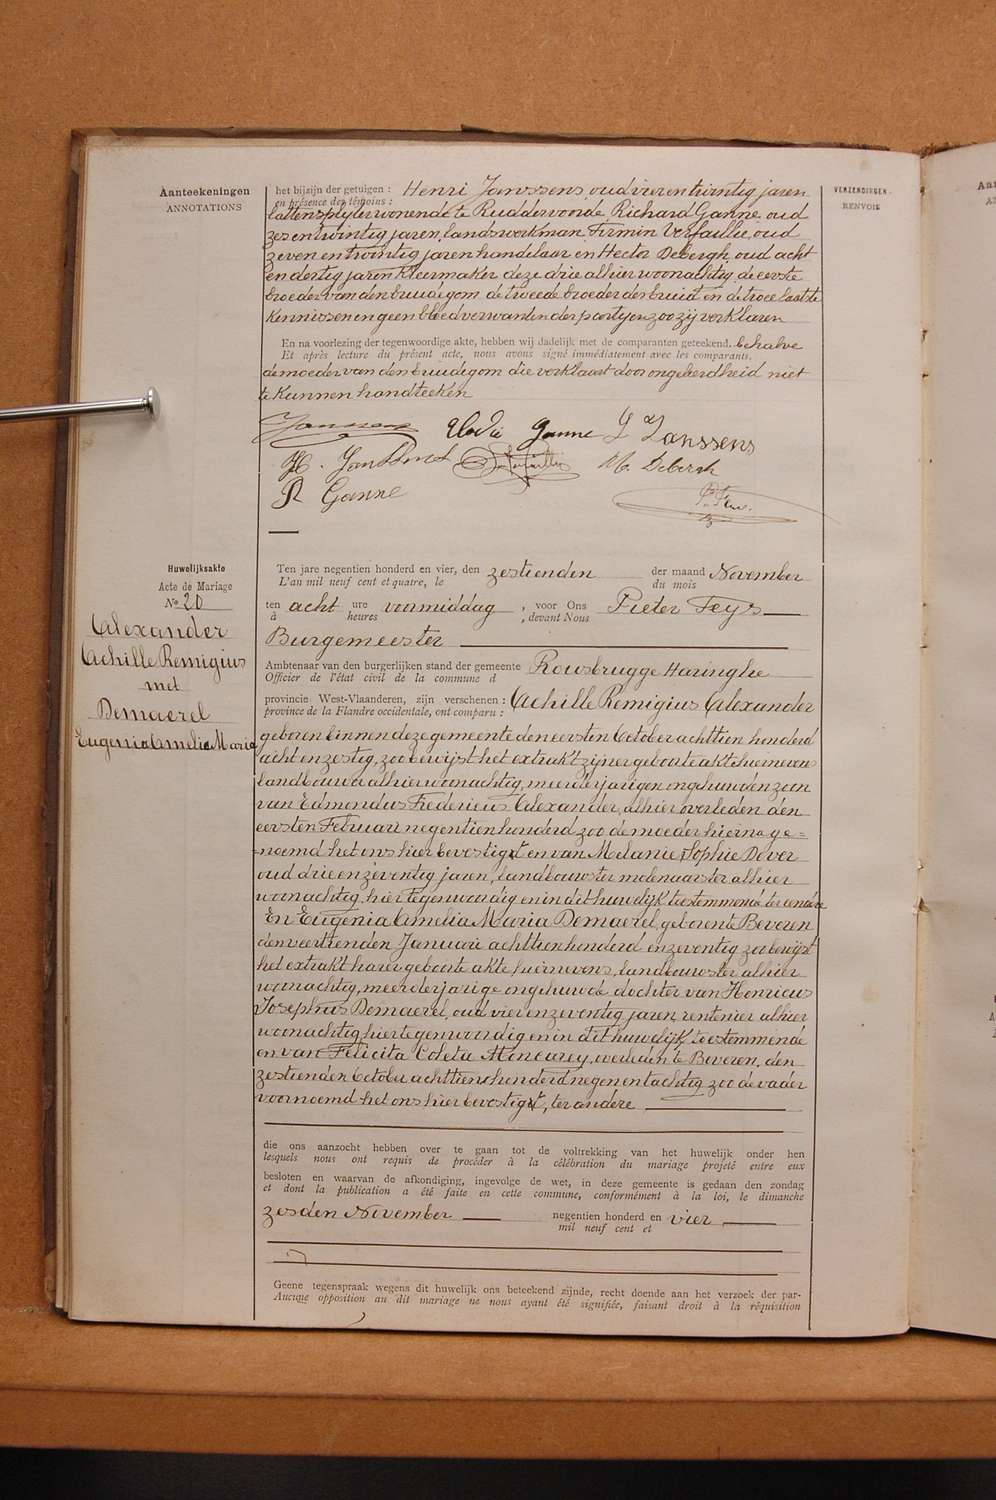 Aanteekeningen
ANNOTATIONS
VERZENDINGEN.
RENVOIS
het bijzijn der getuigen : Henri Janssens, oud vier en twintig jaren
en présence des témoins :
lattensplyter wonende te Ruddervoorde Richard Ganne oud
zes en twintig jaren, landswerkman Firmin Verfaillie, oud
zeven en twintig jaren handelaar en Hector Debergh, oud acht
en dertig jaren kleermaker deze drie alhier woonachtig, de eerste
broeder van den bruidegom de tweede broeder der bruid en de twee laatste
kennissen en geen bloedverwanten der partijen zoo zij verklaren
En na voorlezing der tegenwoordige akte, hebben wij dadelijk met de comparanten geteekend. behalve
Et après lecture du présent acte, nous avons signé immédiatement avec les comparants.
de moeder van den bruidegom die verklaart door ongeleerdheid niet
te kunnen handteeken
Janssens Elodie Ganne Janssens
H. Janssens Verfaillie H. Debergh
R Ganne
Huwelijksakte
Acte de Mariage
No 20
Alexander
Achille Remigius
met
Demaerel
Eugenia Amelia Maria
Ten jare negentien honderd en vier, den zestienden der maand November
L'an mil neuf cent et quatre, le du mois
ten acht ure voormiddag , voor Ons Pieter Feys
à heures , devant Nous
Burgemeester
Ambtenaar van den burgerlijken stand der gemeente Rousbrugge Haringhe
Officier de l'état civil de la commune d
provincie West-Vlaanderen, zijn verschenen : Achille Remigius Alexander
province de la Flandre occidentale, ont comparu :
geboren binnen deze gemeente den eersten October achttien honderd
acht en zestig, zoo bewijst het extrakt zijner geboorte akte hiernevens
landbouwer alhier woonachtig, meerderjarigen ongehuwden zoon
van Edmondus Fredericus Alexander, alhier overleden den
eersten Februari negentien honderd zoo de moeder hierna ge=
=noemd het ons hier bevestigt en van Melanie Sophie Dever
oud drie en zeventig jaren, landbouwster molenaarster alhier
woonachtig, hier tegenwoordig en in dit huwelijk toestemmende ter eenere
En Eugenia Amelia Maria Demaerel, geboren te Beveren
den veertienden Januari achttien honderd en zeventig zoo bewijst
het extrakt harer geboorte akte hiernevens, landbouwster alhier
woonachtig, meerderjarige ongehuwde dochter van Henricus
Josephus Demaerel, oud vier en zeventig jaren, rentenier alhier
woonachtig, hier tegenwoordig en in dit huwelijk toestemmende
en van Felicita Coleta overleden te Beveren, den
zestienden October achttien honderd negen en tachtig zoo de vader
voornoemd het ons hier bevestigt, ter andere
die ons aanzocht hebben over te gaan tot de voltrekking van het huwelijk onder hen
lesquels nous ont requis de procéder à la célébration du mariage projeté entre eux
besloten en waarvan de afkondiging, ingevolge de wet, in deze gemeente is gedaan den zondag
et dont la publication a été faite en cette commune, conformément à la loi, le dimanche
zesden November negentien honderd en vier
mil neuf cent et
Geene tegenspraak wegens dit huwelijk ons beteekend zijnde, recht doende aan het verzoek der par-
Aucune opposition au dit mariage ne nous ayant été signifiée, faisant droit à la réquisition